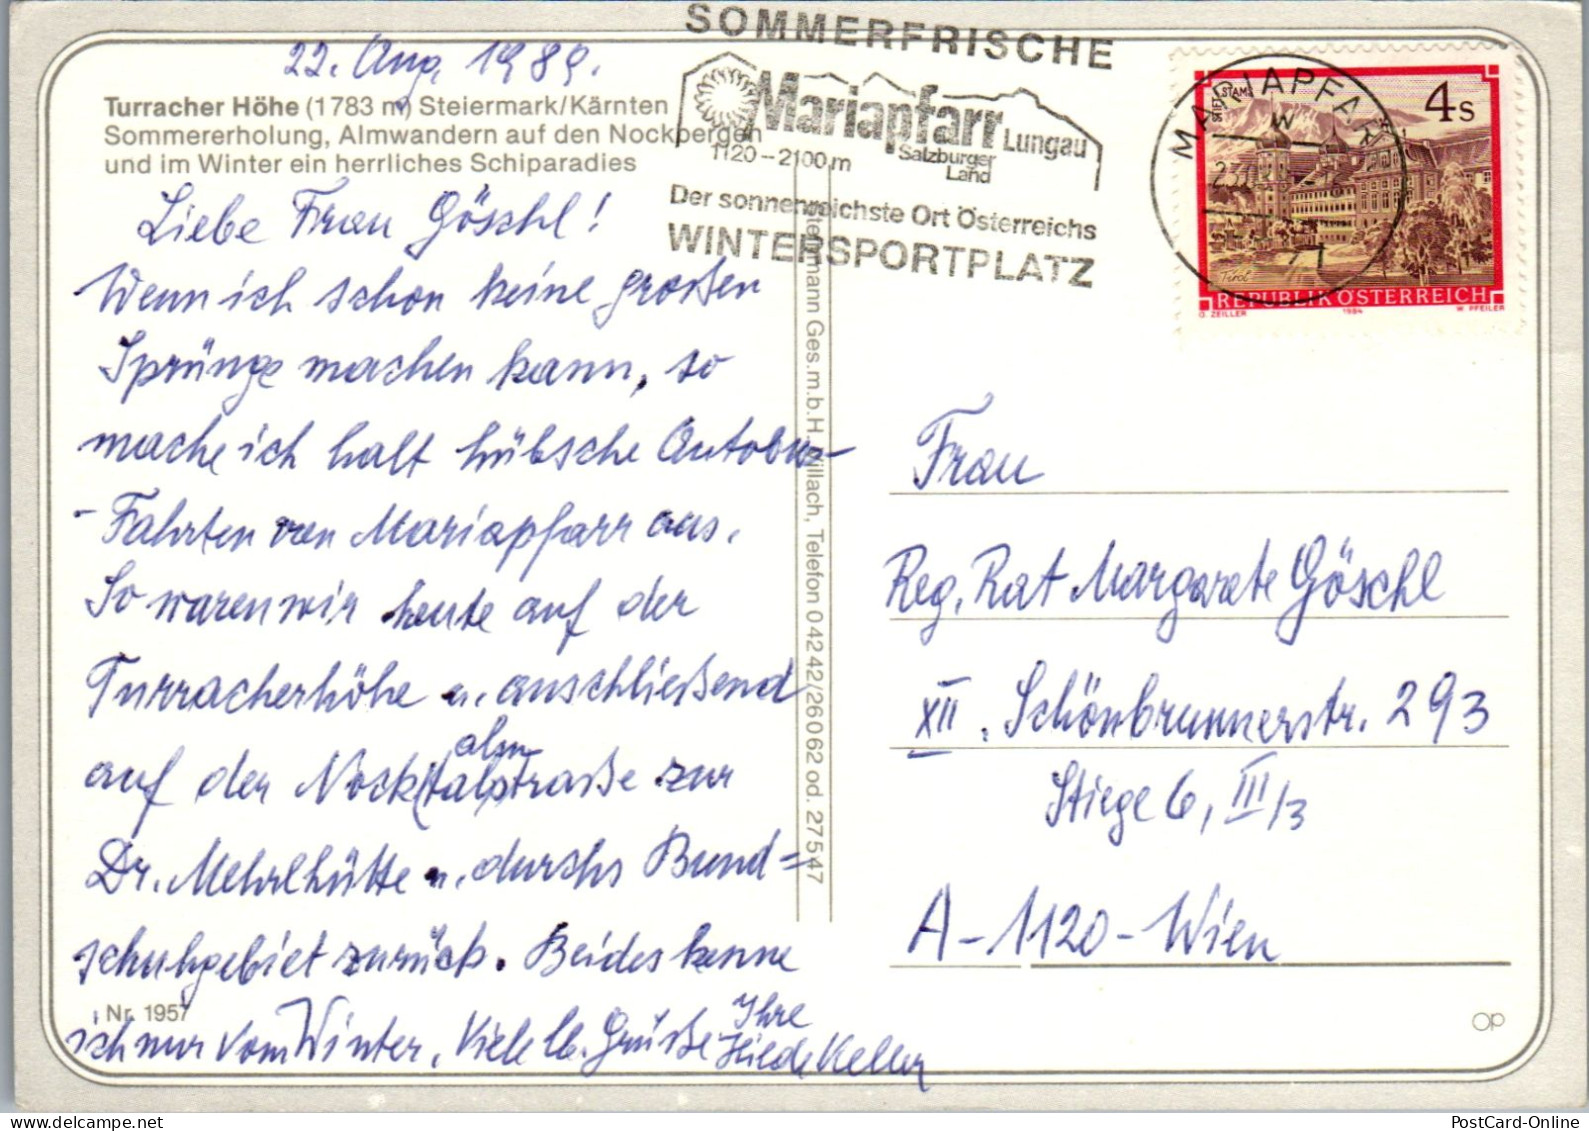 SOMMERFRISCHE
Mariapfarr Lungau
1120-2100 m Salzburger
Land
Der sonnenreichste Ort Österreichs
WINTERSPORTPLATZ
MARIAPFARR
STIFT STAMS
4 S
Tirol
REPUBLIK ÖSTERREICH
O. ZEILLER 1984 W. PFEILER
22. Aug. 1989.
Turracher Höhe (1783 m) Steiermark/Kärnten
Sommererholung, Almwandern auf den Nockbergen
und im Winter ein herrliches Schiparadies
Liebe Frau Göschl!
Wenn ich schon keine großen
Sprünge machen kann, so
mache ich halt hübsche Autobus-
-Fahrten von Mariapfarr aus.
So waren wir heute auf der
Turracherhöhe u. anschließend
alm
auf der Nock(tal)straße zur
Dr. Mehrlhütte u. durchs Bund=
schuhgebiet zurück. Beides kenne
ich nur vom Winter. Viele lb. Grüße Ihre
Hilde Keller
Nr. 1957
mann Ges.m.b.H. Villach, Telefon 0 42 42/2 60 62 od. 2 75 47
Frau
Reg. Rat Margarete Göschl
XII. Schönbrunnerstr. 293
Stiege 6, III/3
A-1120-Wien
PostCard-Online